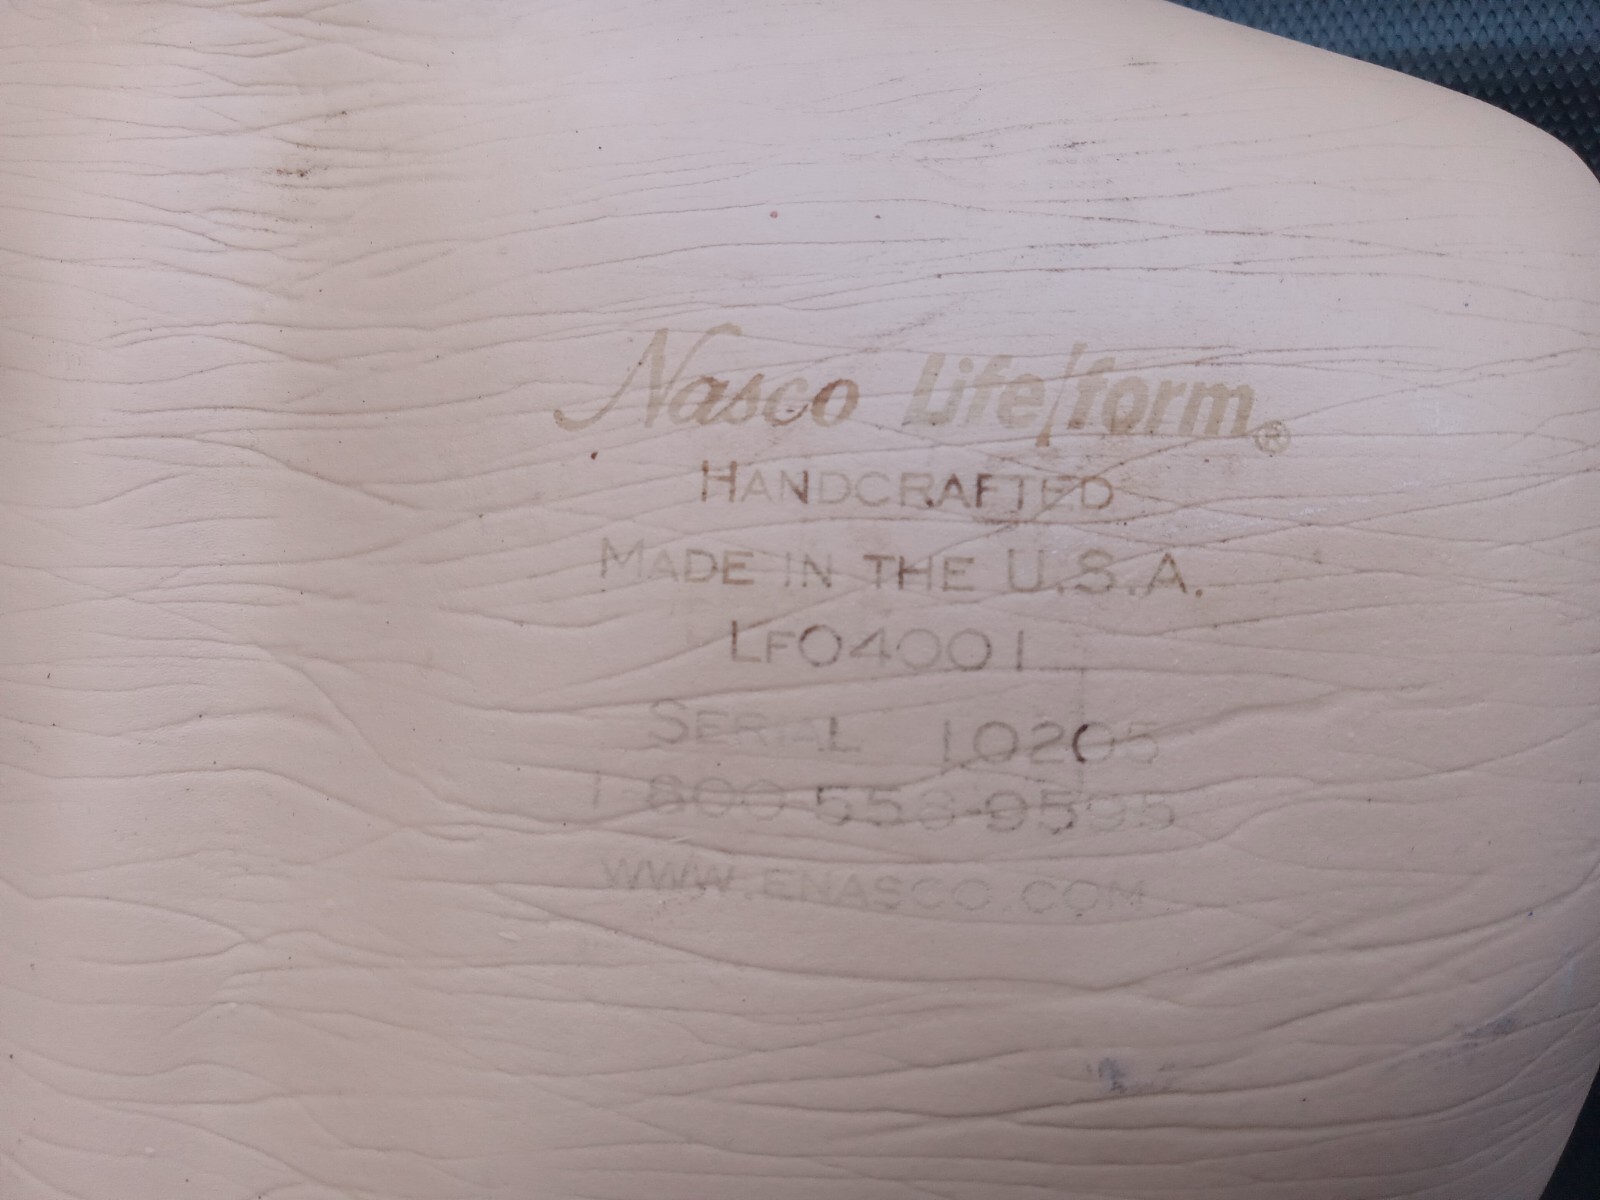 Nasco Life/form®
HANDCRAFTED
MADE IN THE U.S.A.
LF04001
SERIAL 10205
1-800-558-9595
WWW.ENASCO.COM